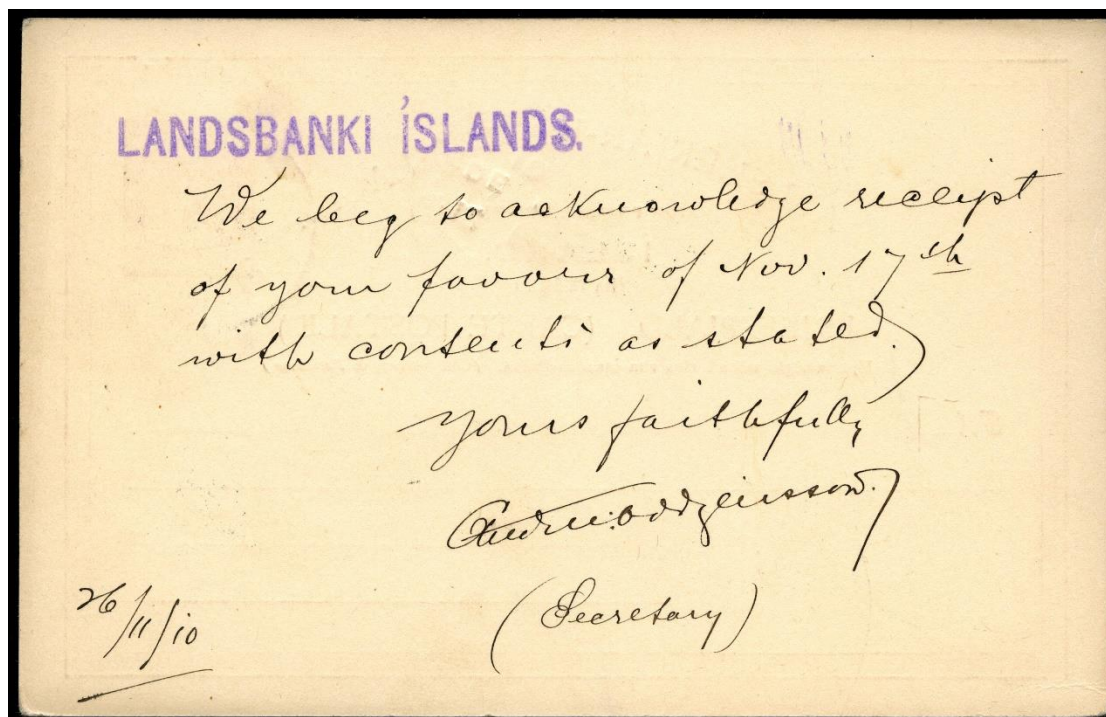 LANDSBANKI ÍSLANDS.
We beg to acknowledge receipt
of your favour of Nov. 17th
with contents as stated.
Yours faithfully
Oddgeirsson.
(Secretary)
26/11/10